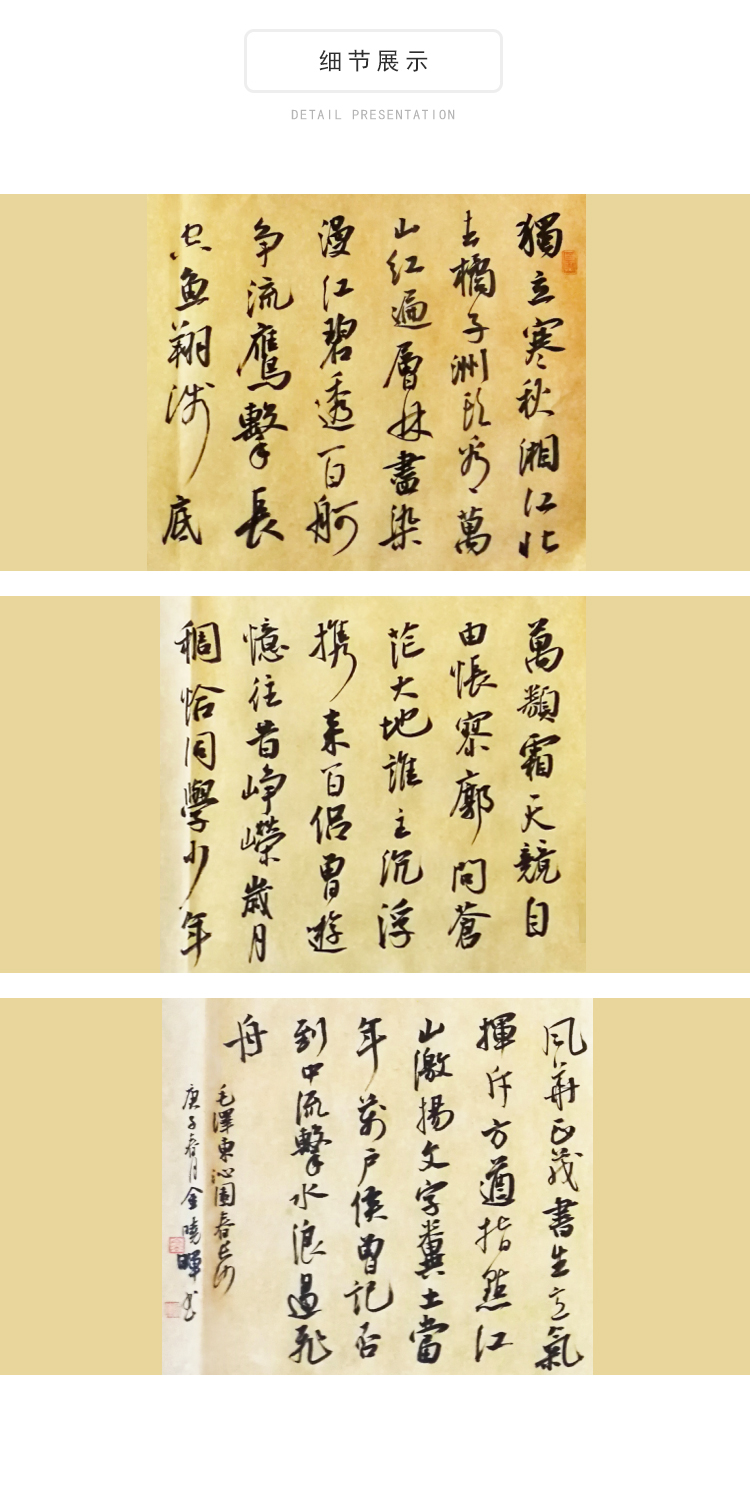 细节展示
DETAIL PRESENTATION
獨立寒秋湘江北
去橘子洲頭看萬
山红遍層林盡染
漫江碧透百舸
争流鷹擊長
空魚翔淺底
萬類霜天競自
由悵寥廓問蒼
茫大地誰主沉浮
携來百侣曾遊
憶往昔崢嶸歲月
稠恰同學少年
風華正茂書生意氣
揮斥方遒指點江
山激揚文字糞土當
年萬户侯曾記否
到中流擊水浪遏飛
舟
毛澤東沁園春長沙
庚子春月金曉暉書